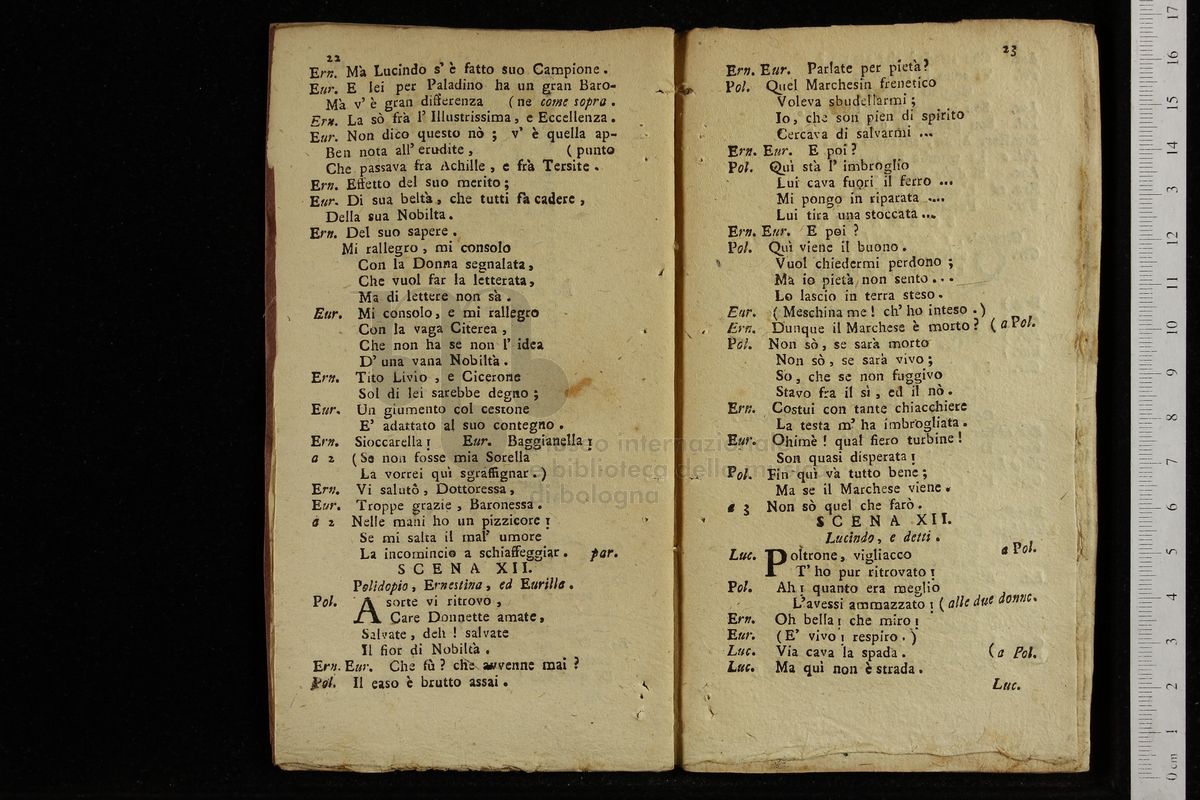 22
Ern. Mà Lucindo s' è fatto suo Campione.
Eur. E lei per Paladino ha un gran Baro-
Mà v' è gran differenza (ne come sopra.
Ern. La sò frà l' Illustrissima, e Eccellenza.
Eur. Non dico questo nò; v' è quella ap-
Ben nota all' erudite, (punto
Che passava fra Achille, e frà Tersite.
Ern. Effetto del suo merito;
Eur. Di sua beltà, che tutti fà cadere,
Della sua Nobilta.
Ern. Del suo sapere.
Mi rallegro, mi consolo
Con la Donna segnalata,
Che vuol far la letterata,
Ma di lettere non sà.
Eur. Mi consolo, e mi rallegro
Con la vaga Citerea,
Che non ha se non l' idea
D' una vana Nobiltà.
Ern. Tito Livio, e Cicerone
Sol di lei sarebbe degno;
Eur. Un giumento col cestone
E' adattato al suo contegno.
Ern. Sioccarella! Eur. Baggianella!
a 2 (Se non fosse mia Sorella
La vorrei quì sgraffignar.)
Ern. Vi salutò, Dottoressa,
Eur. Troppe grazie, Baronessa.
a 2 Nelle mani ho un pizzicore!
Se mi salta il mal' umore
La incomincio a schiaffeggiar. par.
SCENA XII.
Polidopio, Ernestina, ed Eurilla.
Pol. A sorte vi ritrovo,
Care Donnette amate,
Salvate, deh! salvate
Il fior di Nobiltà.
Ern. Eur. Che fù? che avvenne mai?
Pol. Il caso è brutto assai.
23
Ern. Eur. Parlate per pietà?
Pol. Quel Marchesin frenetico
Voleva sbudellarmi;
Io, che son pien di spirito
Cercava di salvarmi ...
Ern. Eur. E poi?
Pol. Quì stà l' imbroglio
Lui cava fuori il ferro ...
Mi pongo in riparata ....
Lui tira una stoccata ...
Ern. Eur. E poi?
Pol. Quì viene il buono.
Vuol chiedermi perdono;
Ma io pietà non sento...
Lo lascio in terra steso.
Eur. (Meschina me! ch' ho inteso.)
Ern. Dunque il Marchese è morto? (a Pol.
Pol. Non sò, se sarà morto
Non sò, se sarà vivo;
So, che se non fuggivo
Stavo fra il sì, ed il nò.
Ern. Costui con tante chiacchiere
La testa m' ha imbrogliata.
Eur. Ohimè! qual fiero turbine!
Son quasi disperata!
Pol. Fin quì và tutto bene;
Ma se il Marchese viene.
a 3 Non sò quel che farò.
SCENA XII.
Lucindo, e detti.
Luc. Poltrone, vigliacco a Pol.
T' ho pur ritrovato!
Pol. Ah! quanto era meglio
L'avessi ammazzato! (alle due donne.
Ern. Oh bella! che miro!
Eur. (E' vivo! respiro.)
Luc. Via cava la spada. (a Pol.
Luc. Ma quì non è strada.
Luc.
museo internazionale
e biblioteca della musica
di bologna
0 cm 1 2 3 4 5 6 7 8 9 10 11 12 13 14 15 16 17